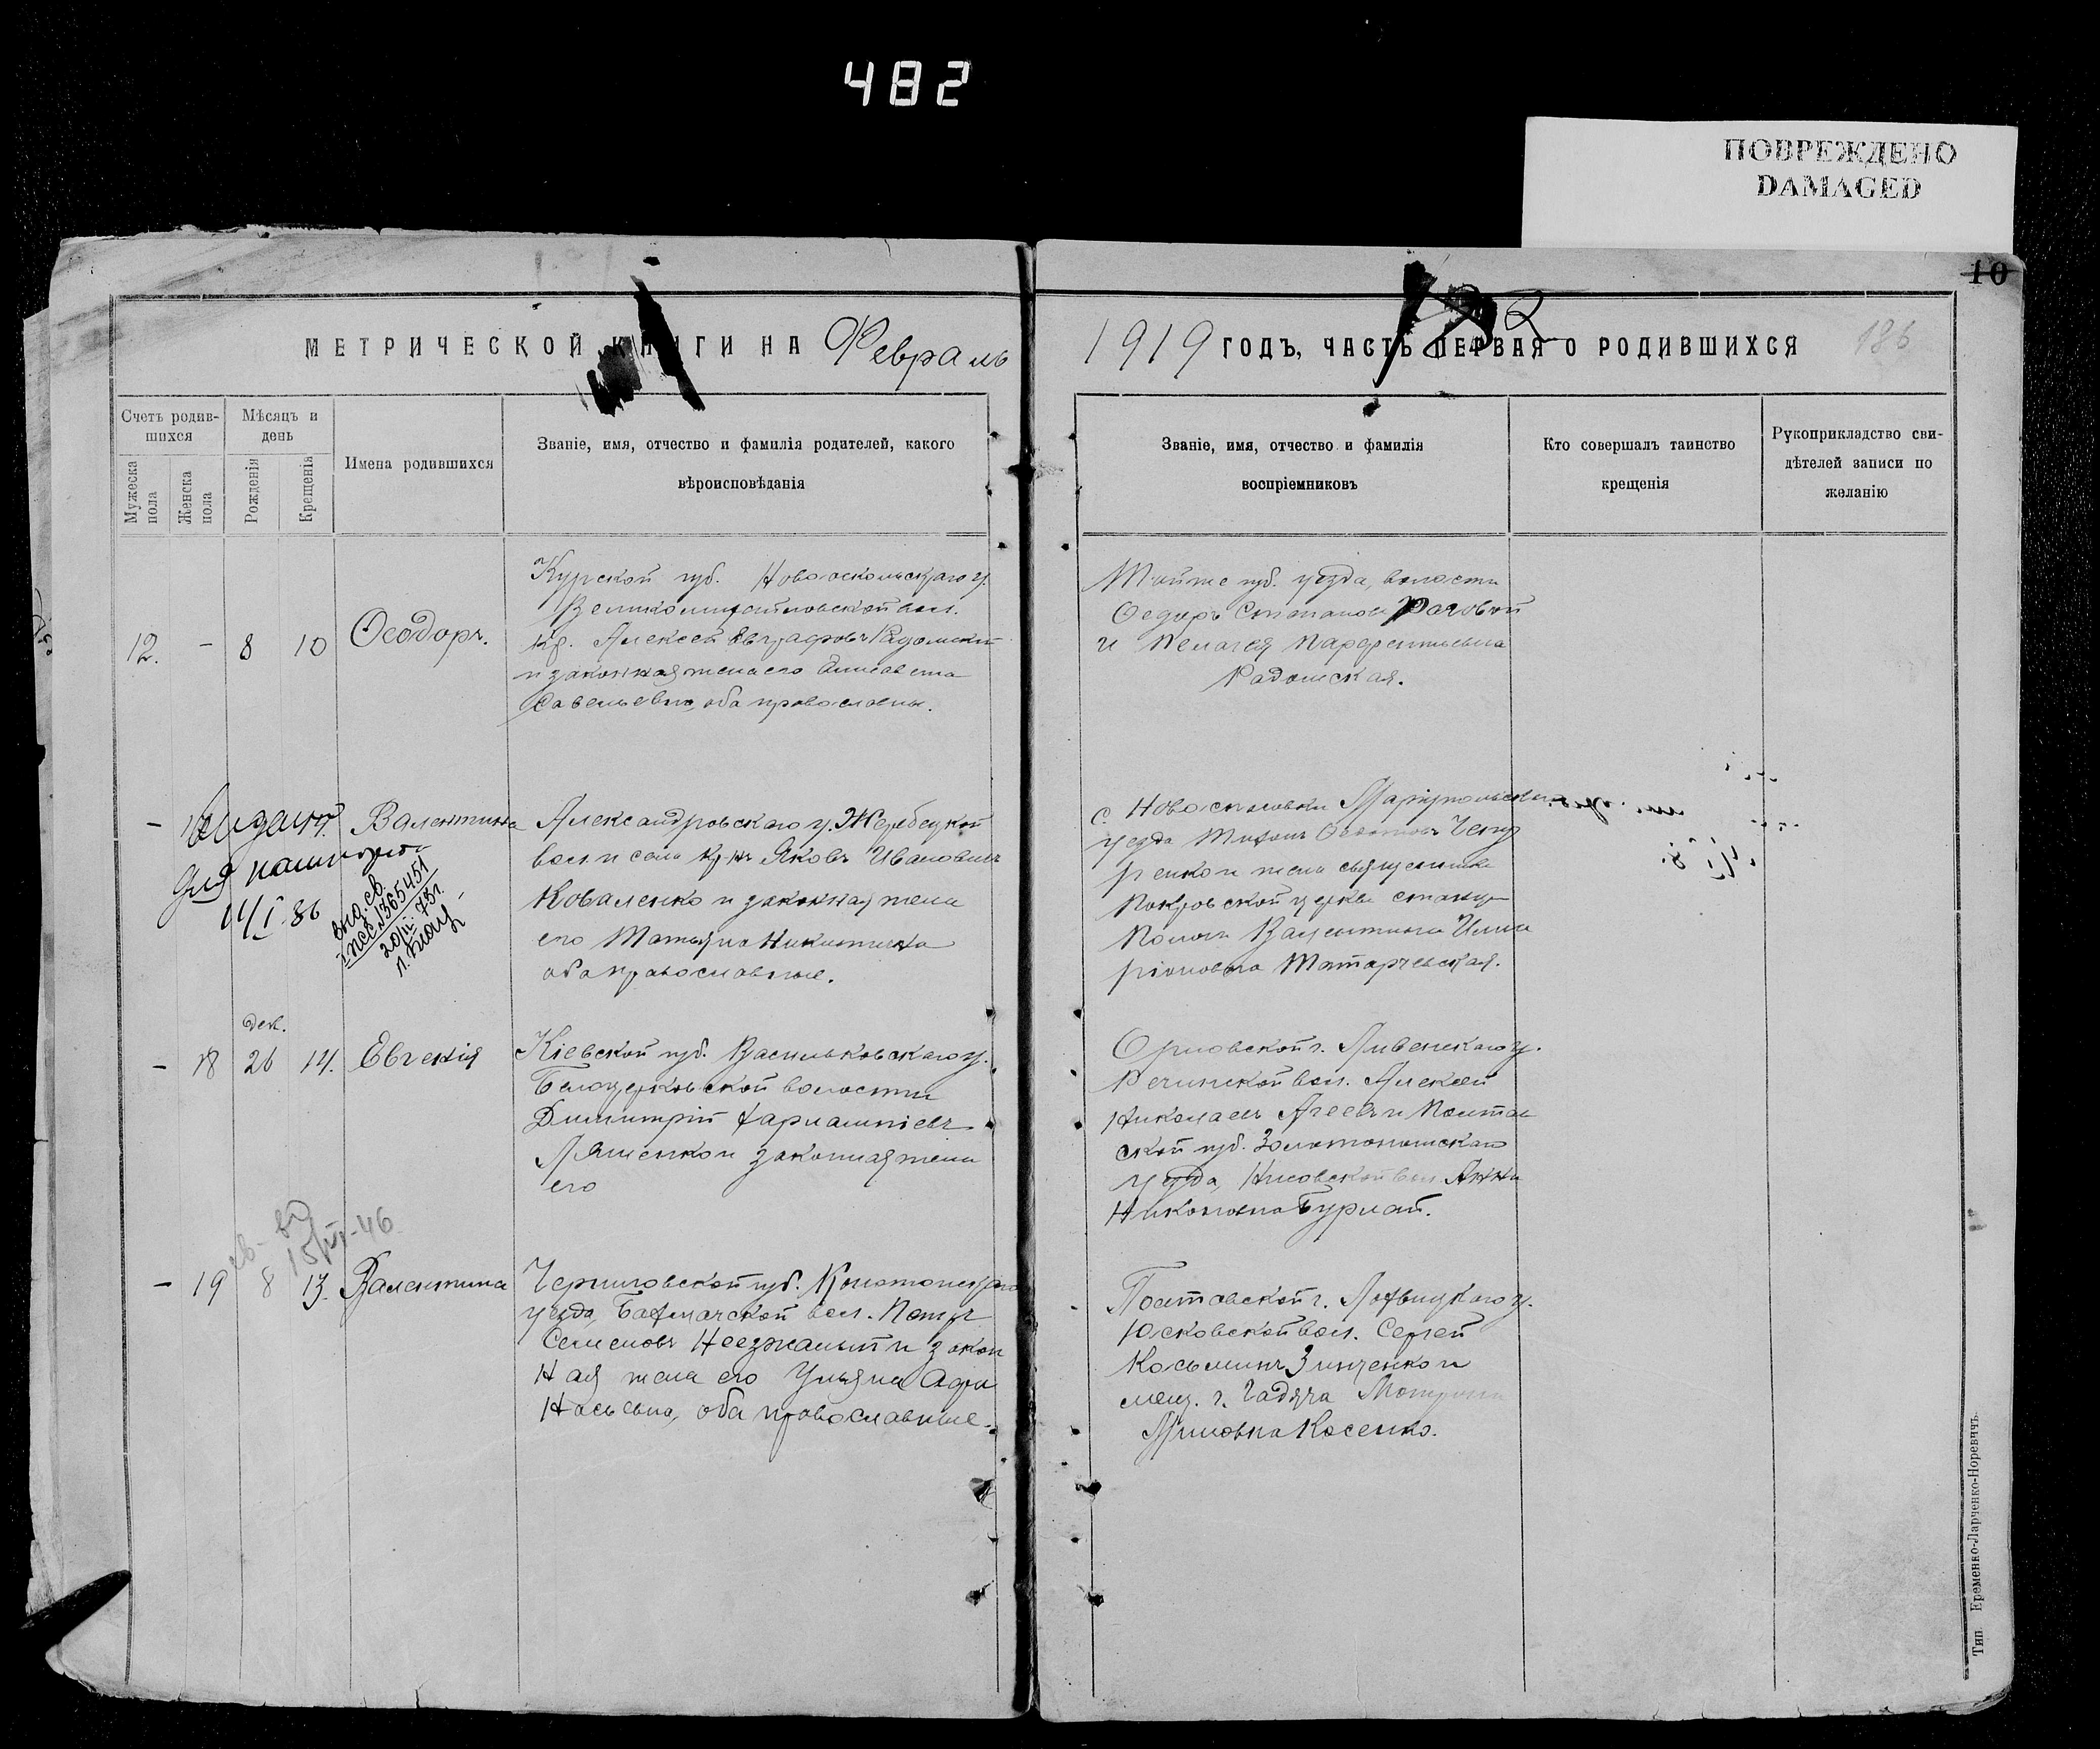 482
ПОВРЕЖДЕНО
DAMAGED
10
МЕТРИЧЕСКОЙ КНИГИ НА Февраль
1919 ГОДЪ, ЧАСТЬ ПЕРВАЯ О РОДИВШИХСЯ
186
Счетъ родив-
шихся
Мужеска пола
Женска пола
Мѣсяцъ и
день
Рожденія
Крещенія
Имена родившихся
Званіе, имя, отчество и фамилія родителей, какого
вѣроисповѣданія
Званіе, имя, отчество и фамилія
воспріемниковъ
Кто совершалъ таинство
крещенія
Рукоприкладство сви-
дѣтелей записи по
желанію
12. - 8 10 Ѳеодоръ.
Курской губ. Новооскольскаго у.
Великомихайловской вол.
кр. Алексей Евграфовъ Радомскій
и законная жена его Елисавета
Савельевна, оба православны.
Тойже губ. уезда, волости
Ѳедоръ Степановъ Роговой
и Пелагея Парфентьевна
Радомская.
- Валентина
для паспорта
14/I.86
выд. св.
1365451
20/III-78г.
Александровскаго у. Жеребецкой
вол и села кр-нъ Яковъ Ивановичъ
Коваленко и законная жена
его Татьяна Никитична
оба православные.
с. Новоспасовки Маріупольскаго
уезда
жена священника
Покровской церкви
Пологи Валентина Илла
ріоновна Татарчевская.
дек.
- 18 26 14. Евгенія
Кіевской губ. Васильковскаго у.
Белоцерковской волости
Димитрій
Ляшенко и законная жена
его
Орловской г. Ливенскаго у.
Речинской вол. Алексей
Николаевъ Агеевъ и Полтав
ской губ. Золотоношскаго
уезда, вол Анна
Никоновна Бурлай.
св. вд
15/VI-46
- 19 8 13. Валентина
Черниговской губ. Конотопскаго
уезда, Бахмачской вол. Петръ
Семеновъ Неезжалый и закон
ная жена его Ульяна Афа
насьевна, оба православные.
Полтавской г. Лохвицкаго у.
Юсковской вол. Сергей
Косьминъ Зинченко и
мещ. г. Гадяча
Косенко.
Тип. Еременко-Ларченко-Норевичъ.